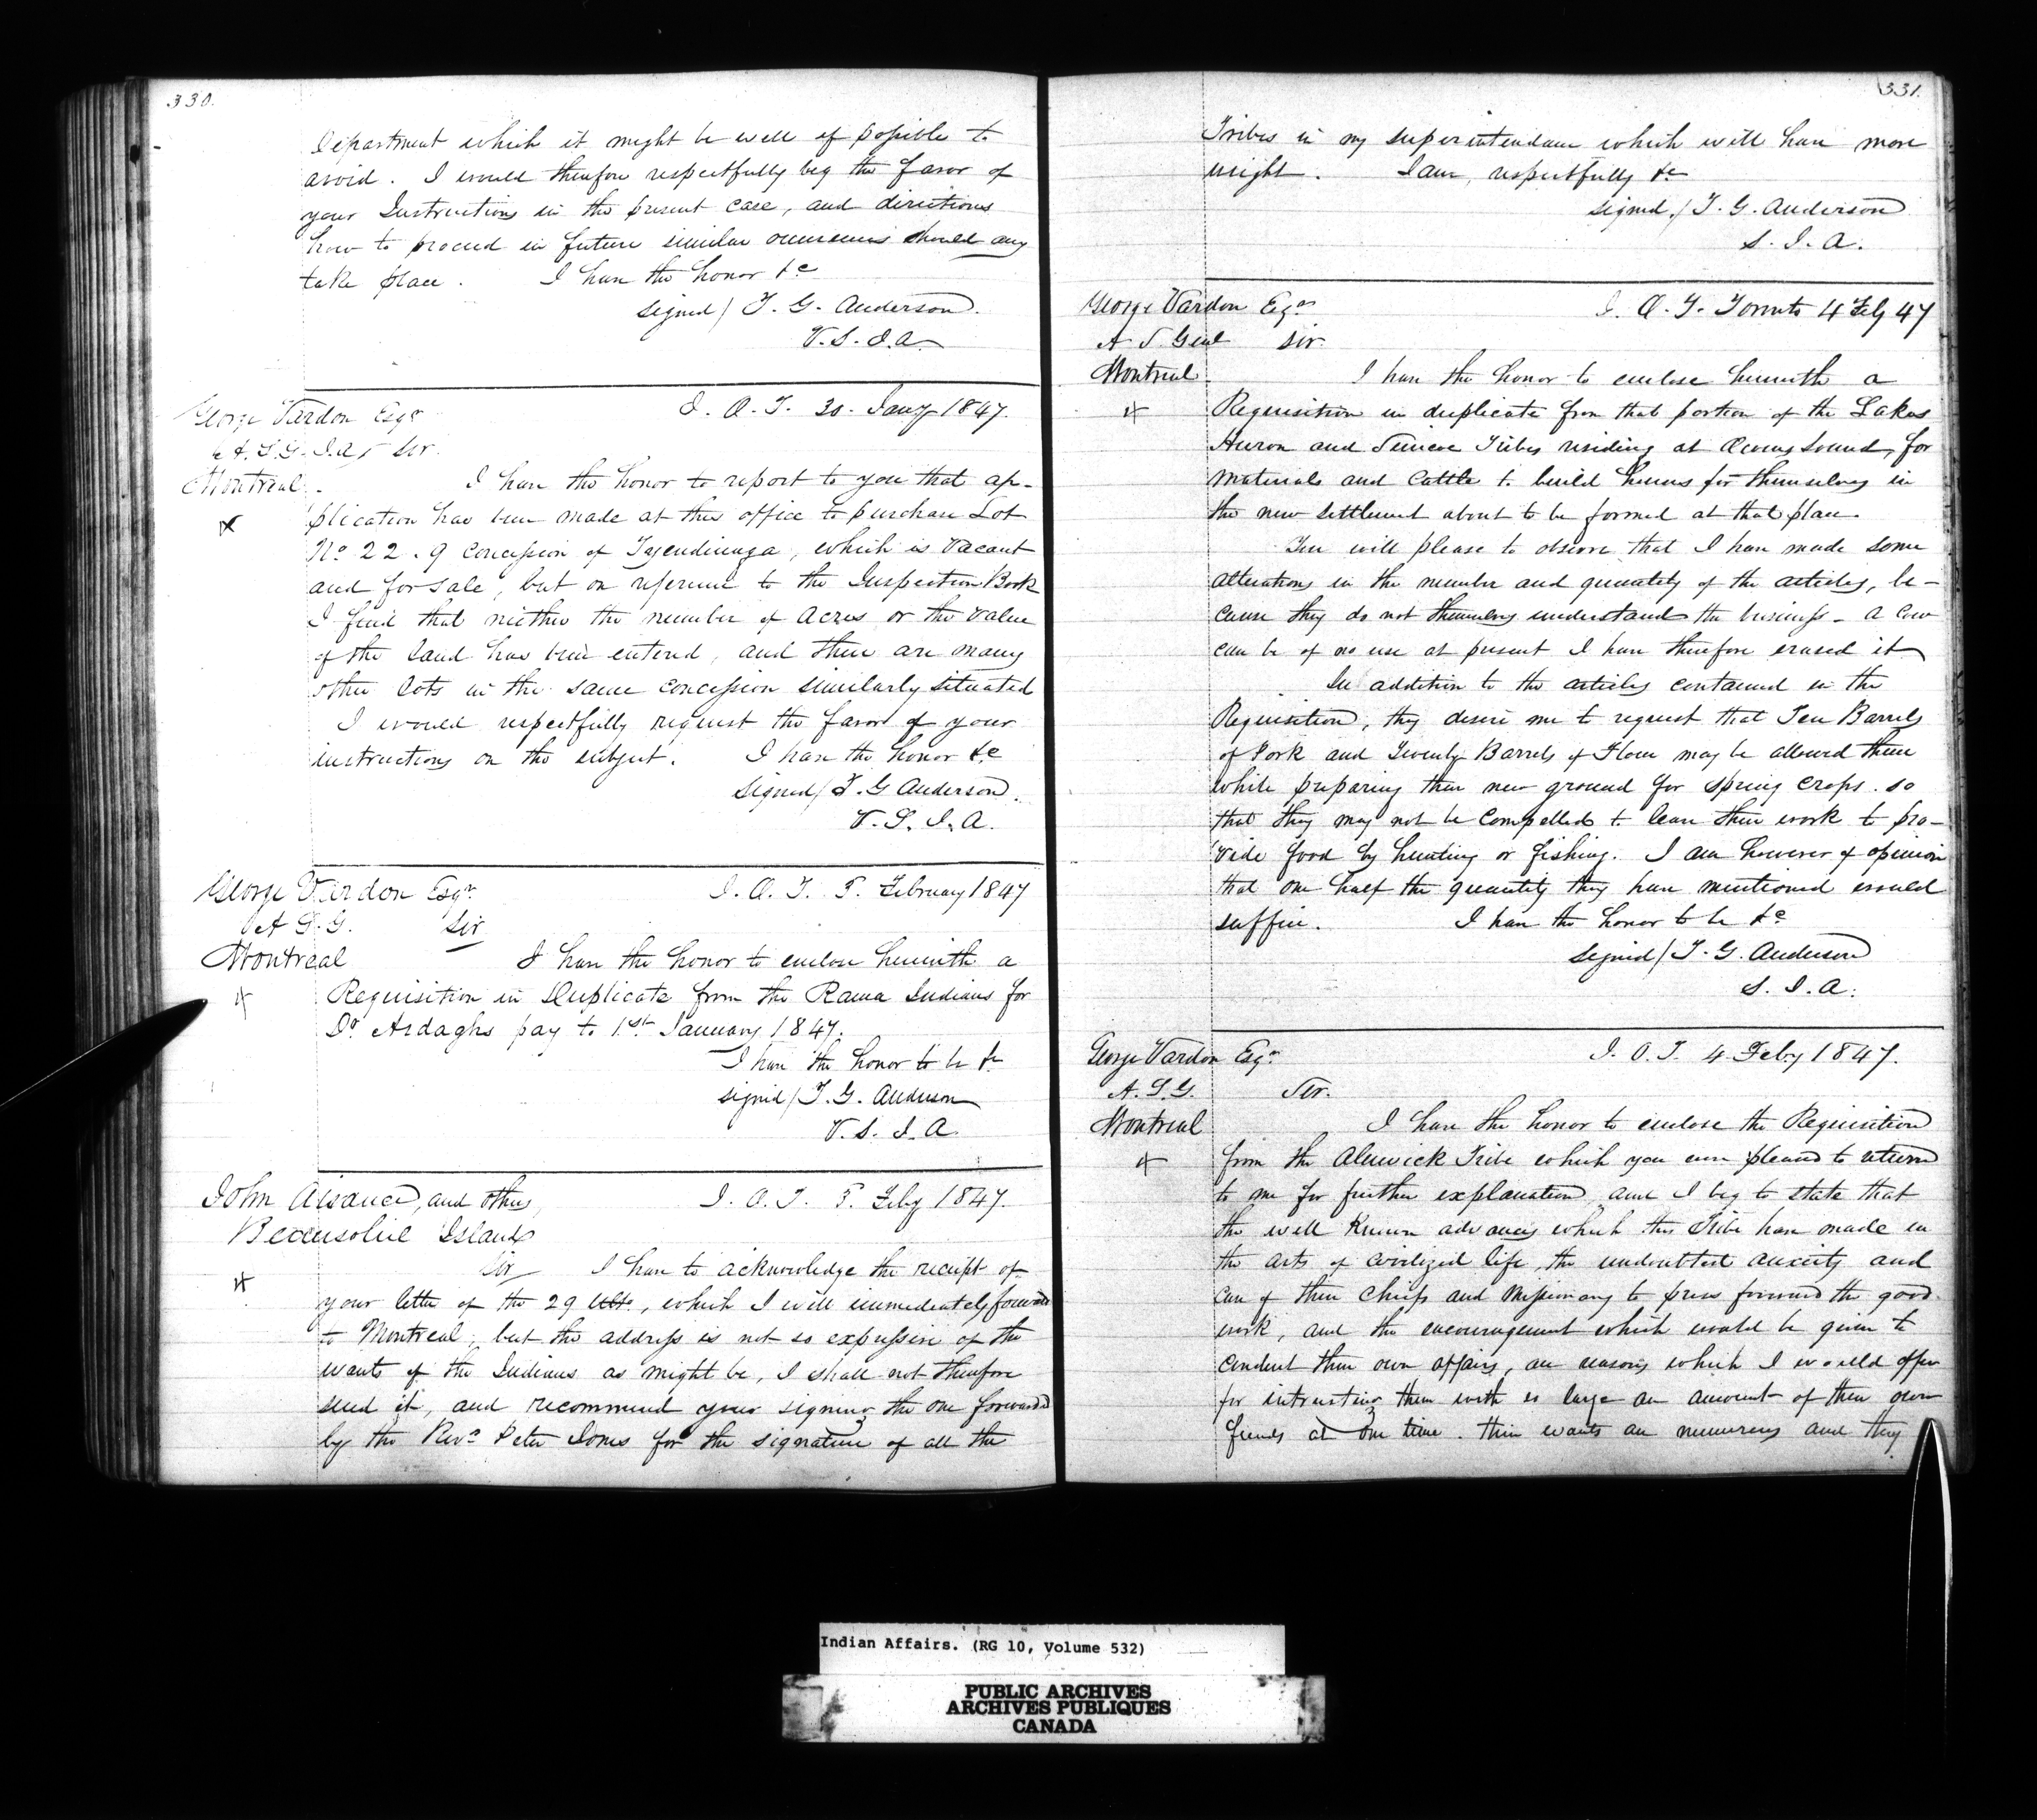 330.
Department which it might be well if possible to
avoid. I would therefore respectfully beg the favor of
your Instructions in the present case, and directions
how to proceed in future similar occurrences should any
take place. I have the honor &c
signed / T. G. Anderson.
V. S. I. A.
George Vardon Esqr
A. S. G. I. A. Sir.
Montreal.
I. O. T. 30. Jany 1847.
I have the honor to report to you that ap-
plication has been made at this office to purchase Lot
No 22. 9 Concession of Tyendinaga, which is Vacant
and for sale, but on reference to the Inspection Book
I find that neither the number of Acres or the value
of the land has been entered, and there are many
other lots in the same concession similarly situated
I would respectfully request the favor of your
instructions on the subject. I have the honor &c
signed / T. G Anderson.
V. S. I. A.
George Vardon Esqr
A S. G. Sir
Montreal
I. O. T. February 1847
I have the honor to enclose herewith a
Requisition in Duplicate from the Rama Indians for
Dr Ardaghs pay to 1st January 1847.
I have the honor to be &c
signed / T. G. Anderson
V. S. I. A
John Aisance, and others,
Beausolie Island
I. O. T. Feby 1847.
Sir I have to acknowledge the receipt of
your letter of the 29 Ulto, which I will immediately forward
to Montreal, but the address is not so expressive of the
wants of the Indians as might be, I shall not therefore
send it, and recommend your signing the one forwarded
by the Revd Peter Jones for the signature of all the
331.
Tribes in my superintendance which will have more
weight. I am, respectfully &c
signed / T. G. Anderson
S. I. A.
George Vardon Esqr
A S Genl Sir.
Montreal.
I. O. T. Toronto 4 Feby 47
I have the honor to enclose herewith a
Requisition in duplicate from that portion of the Lakes
Huron and Simcoe Tribes residing at Owens Sound, for
Materials and Cattle to build houses for themselves in
the new settlement about to be formed at that place.
You will please to observe that I have made some
alterations in the number and quantity of the articles, be-
cause they do not themselves understand the business - a cow
can be of no use at present I have therefore erased it
In addition to the articles contained in the
Requisition, they desire me to request that Ten Barrels
of Pork and Twenty Barrels of Flour may be allowed them
while preparing their new ground for spring crops. so
that they may not be compelled to leave their work to pro-
vide food by hunting or fishing. I am however of opinion
that one half the quantity they have mentioned would
suffice. I have the honor to be &c
signed / T. G. Anderson
S. I. A.
George Vardon Esqr
A. S. G. Sir.
Montreal
I. O. T. 4 Feby 1847.
I have the honor to enclose the Requisition
from the Alnwick Tribe which you were pleased to return
to me for further explanation and I beg to state that
the well known advances which this Tribe have made in
the arts of civilized life, the undoubted anxiety and
care of their Chiefs and Missionary to press forward the good
work, and the encouragement which would be given to
conduct their own affairs, are reasons which I would offer
for intrusting them with so large an amount of their own
funds at one time. their wants are numerous and they
Indian Affairs. (RG 10, Volume 532)
PUBLIC ARCHIVES
ARCHIVES PUBLIQUES
CANADA